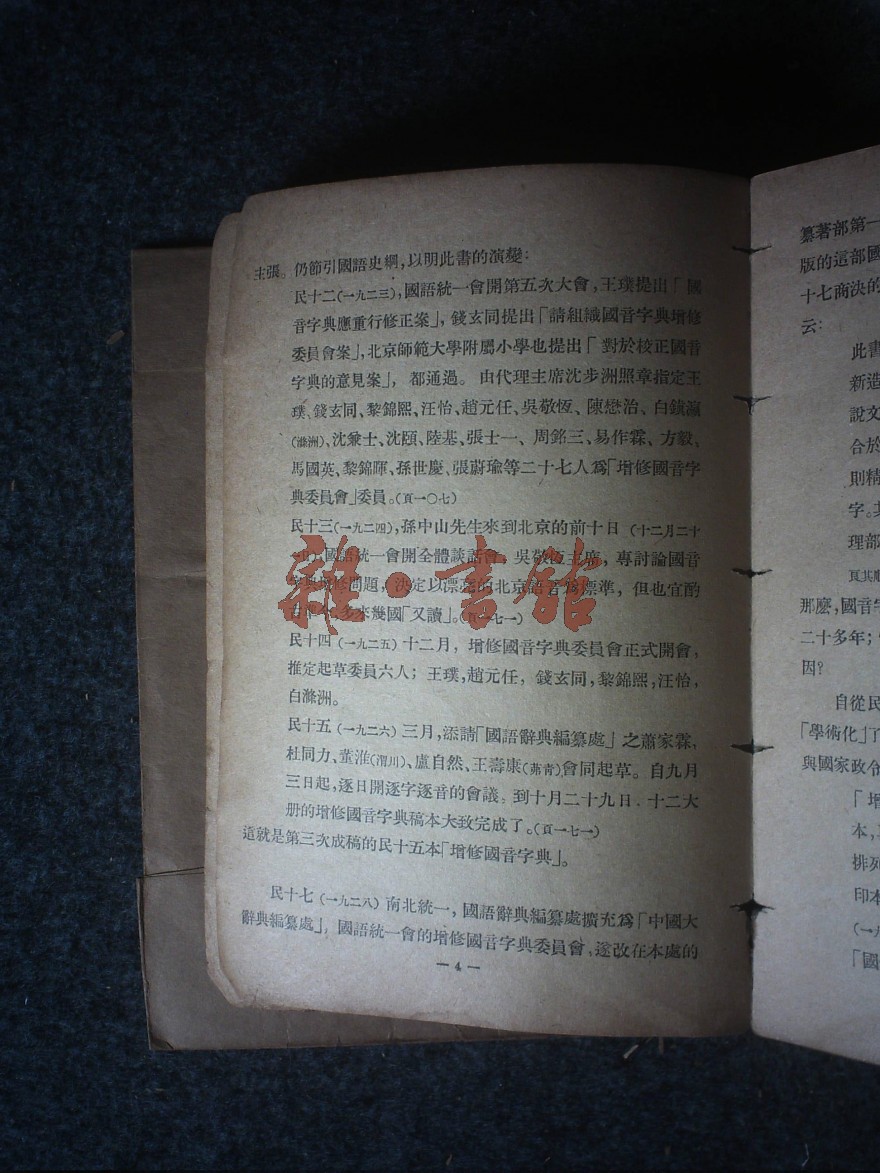 主張。仍節引國語史綱,以明此書的演變:
民十二(一九二三),國語統一會開第五次大會,王璞提出「國
音字典應重行修正案」,錢玄同提出「請組織國音字典增修
委員會案」,北京師範大學附屬小學也提出「對於校正國音
字典的意見案」,都通過。由代理主席沈步洲照章指定王
璞、錢玄同、黎錦熙、汪怡、趙元任、吳敬恆、陳懋治、白鎮瀛
(滌洲)、沈兼士、沈頤、陸基、張士一、周銘三、易作霖、方毅、
馬國英、黎錦暉、孫世慶、張蔚瑜等二十七人爲「增修國音字
典委員會」委員。(頁一〇七)
民十三(一九二四),孫中山先生來到北京的前十日(十二月二十
國語統一會開全體談話會,吳敬恆主席,專討論國音
字典增修問題,決定以漂亮的北京語音爲標準,但也宜酌
多來幾國「又讀」。(頁一七一)
民十四(一九二五)十二月,增修國音字典委員會正式開會,
推定起草委員六人;王璞,趙元任,錢玄同,黎錦熙,汪怡,
白滌洲。
民十五(一九二六)三月,添請「國語辭典編纂處」之蕭家霖、
杜同力、董淮(渭川)、盧自然、王壽康(茀青)會同起草。自九月
三日起,逐日開逐字逐音的會議。到十月二十九日.十二大
册的增修國音字典稿本大致完成了。(頁一七一)
這就是第三次成稿的民十五本「增修國音字典」。
民十七(一九二八)南北統一,國語辭典編纂處擴充爲「中國大
辭典編纂處」,國語統一會的增修國音字典委員會,遂改在本處的
—4—
雜·書館
纂著部第一
版的這部國
十七商決的
云:
此書
新造
說文
合於
則精
字。其
理部
頁其順
那麼,國音字
二十多年;
因?
自從民
「學術化」了
與國家政令
「增
本,
排列
印本
(一九
「國